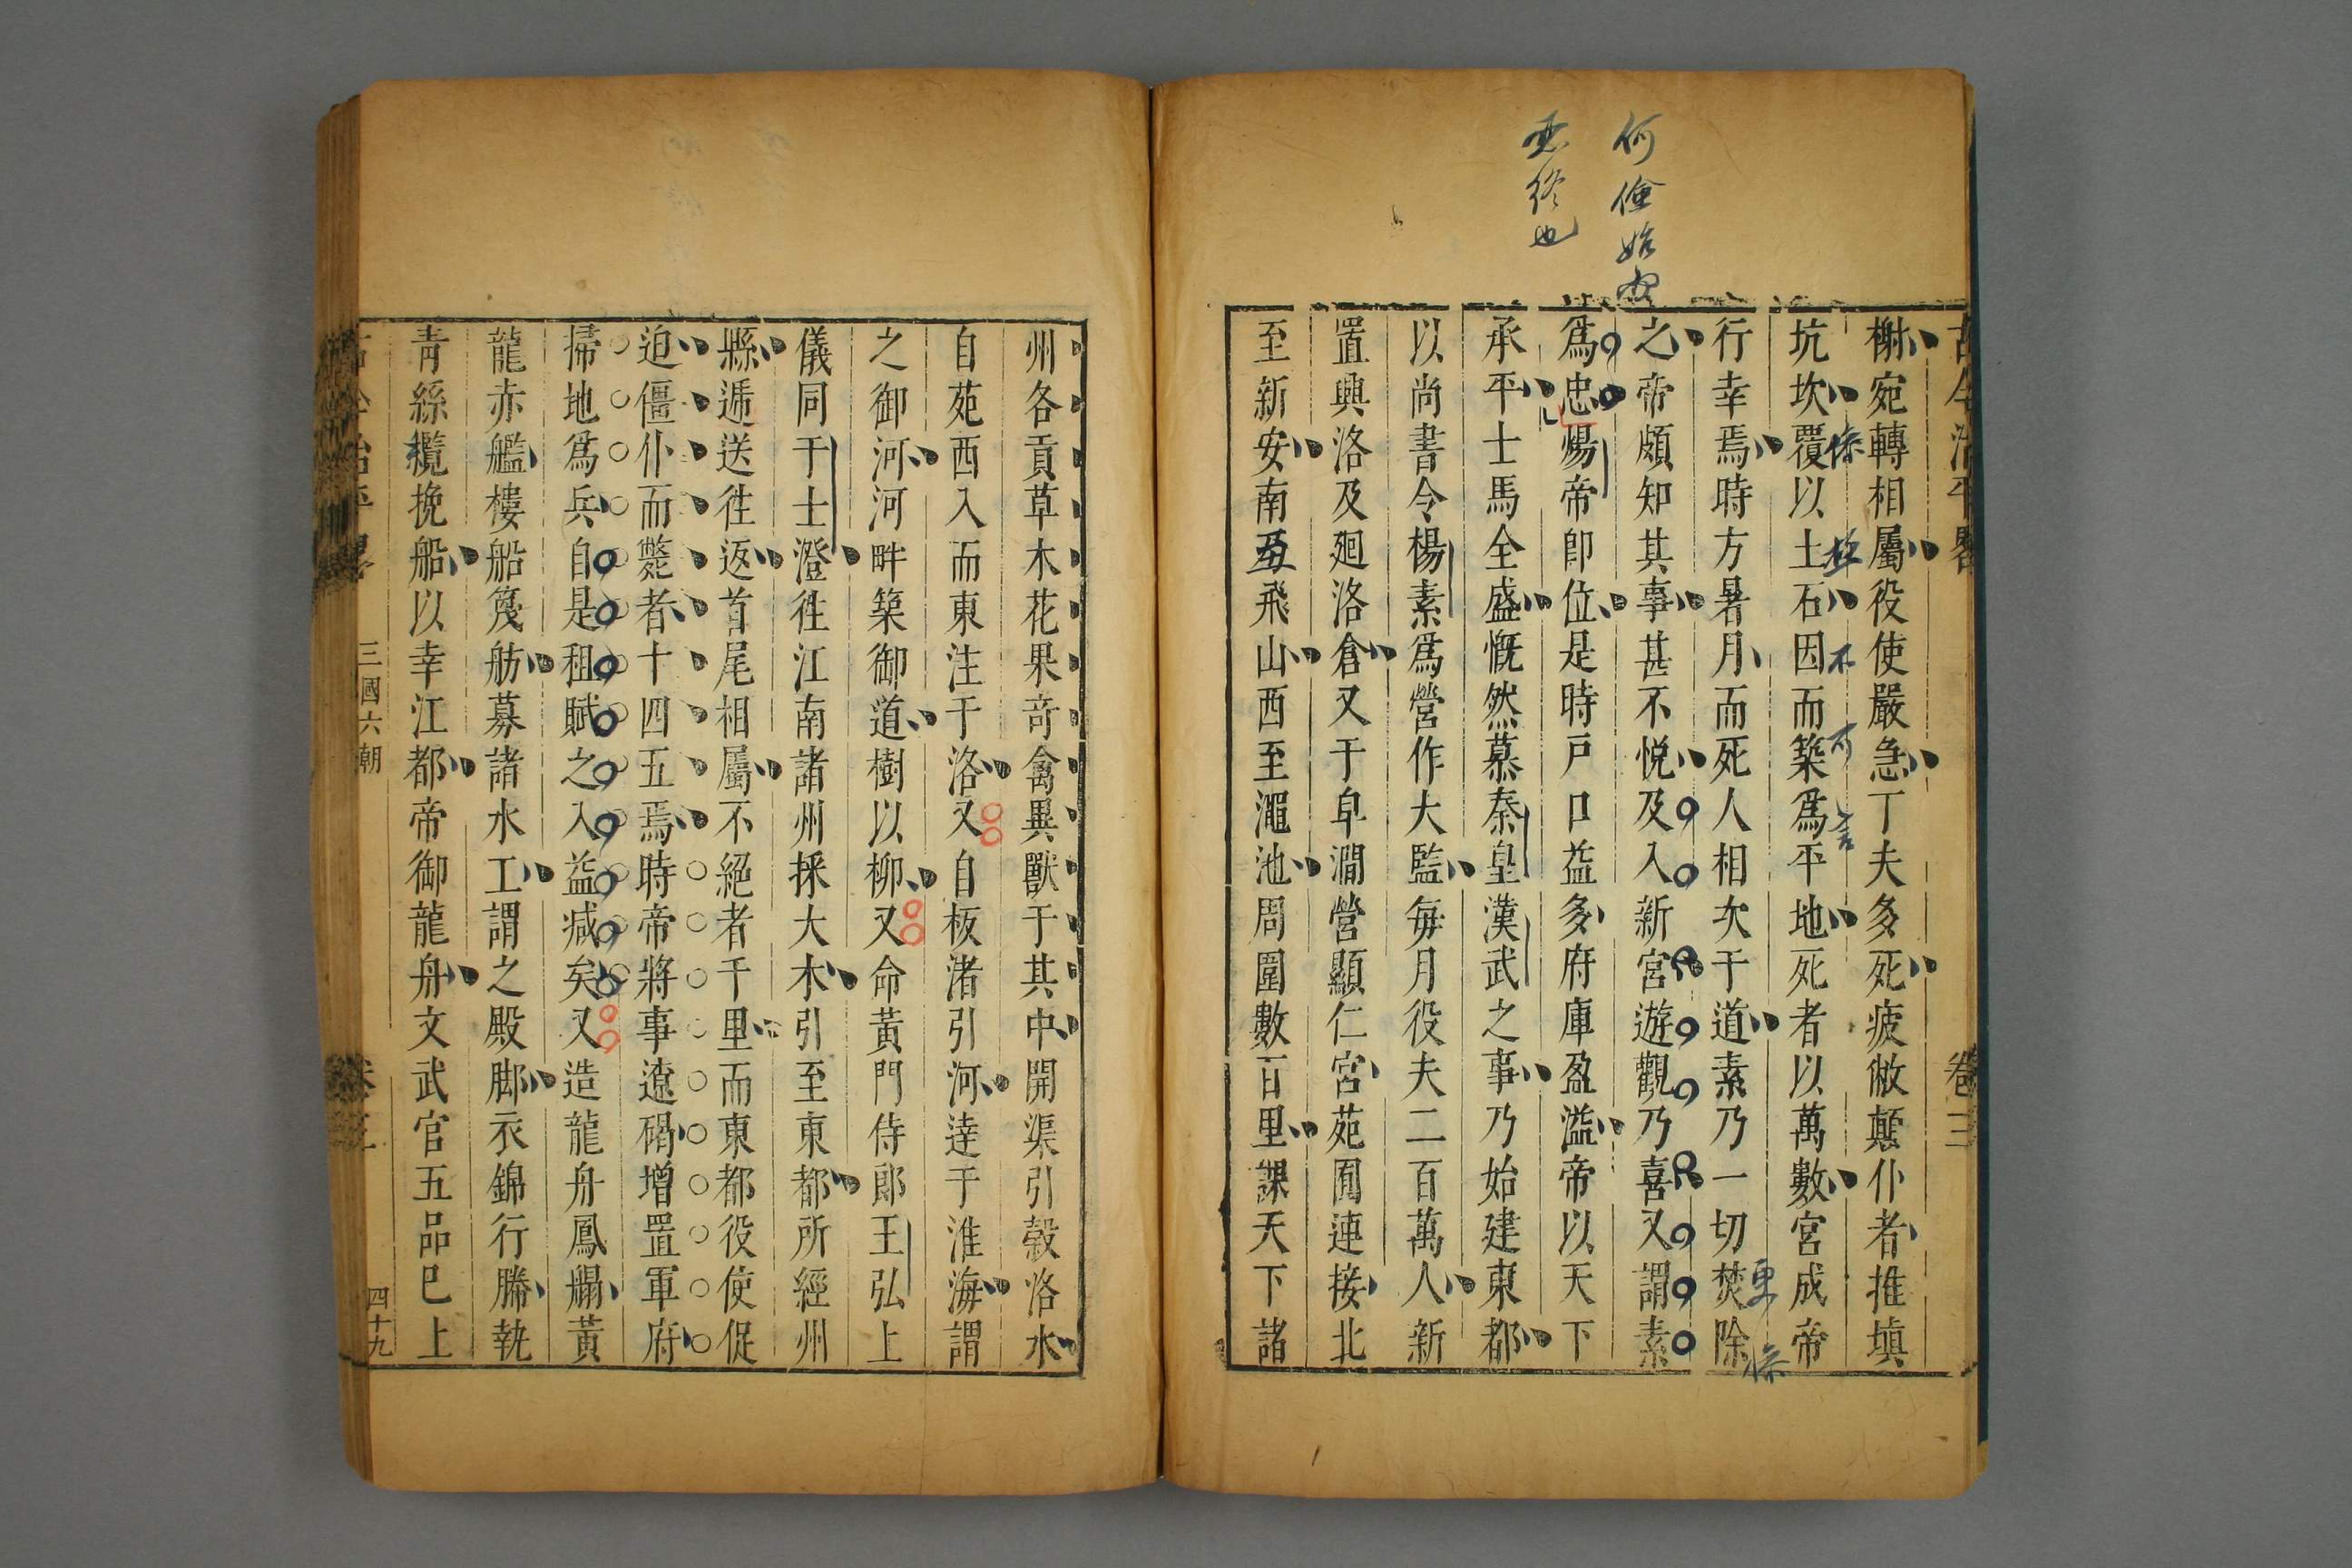 何儉始而
惡終也
古今治平畧 卷三
榭宛轉相屬役使嚴急丁夫多死疲敝顛仆者推填
坑坎覆以土石因而築爲平地死者以萬數宮成帝
行幸焉時方暑月而死人相次于道素乃一切焚除
之帝頗知其事甚不悅及入新宮遊觀乃喜又謂素
爲忠煬帝卽位是時戶口益多府庫盈溢帝以天下
承平士馬全盛慨然慕秦皇漢武之事乃始建東都
以尚書令楊素爲營作大監每月役夫二百萬人新
置興洛及廻洛倉又于皁澗營顯仁宮苑囿連接北
至新安南及飛山西至澠池周圍數百里課天下諸
州各貢草木花果奇禽異獸于其中開渠引穀洛水
自苑西入而東注于洛又自板渚引河達于淮海謂
之御河河畔築御道樹以柳又命黃門侍郎王弘上
儀同于士澄徃江南諸州採大木引至東都所經州
縣遞送徃返首尾相屬不絕者千里而東都役使促
迫僵仆而斃者十四五焉時帝將事遼碣增置軍府
掃地爲兵自是租賦之入益減矣又造龍舟鳳䑽黃
龍赤艦樓船篾舫募諸水工謂之殿脚衣錦行幐執
青絲纜挽船以幸江都帝御龍舟文武官五品巳上
古今治平畧 三國六朝 卷三 四十九